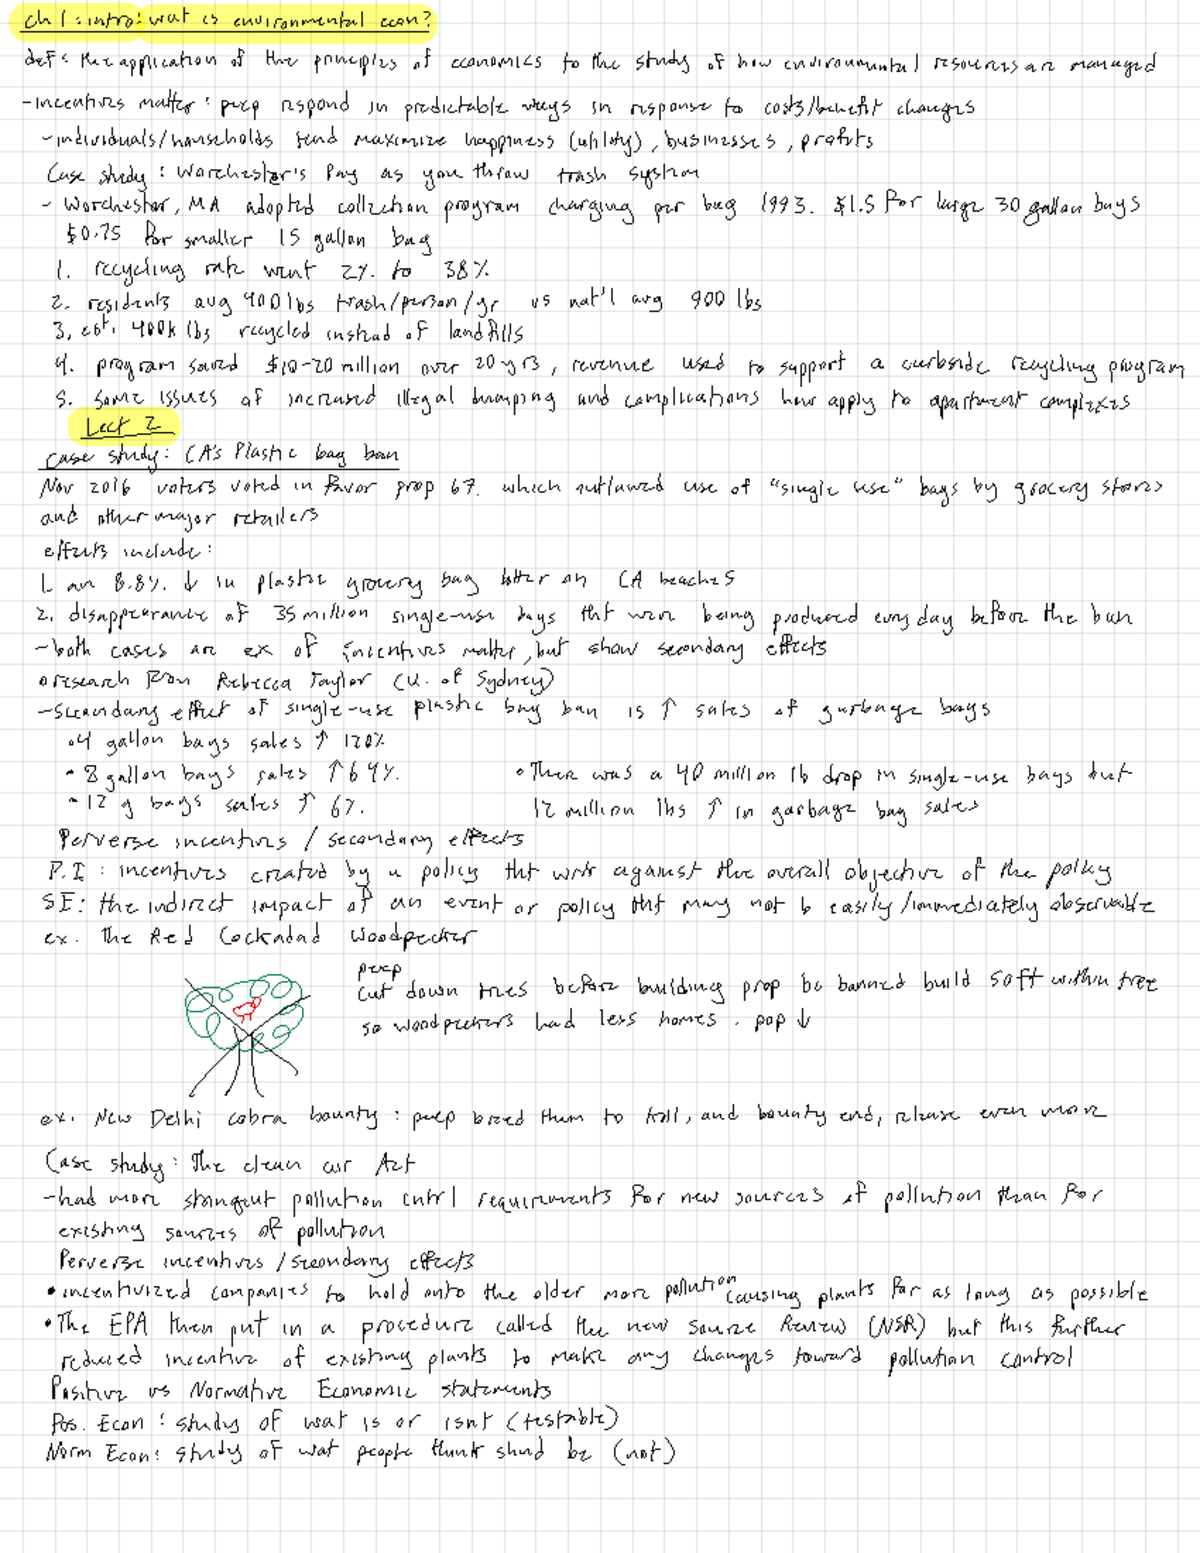 ch 1: intro: wat is environmental econ?
def: the application of the principles of economics to the study of how environmental resources are managed
-incentives matter: peep respond in predictable ways in response to costs/benefit changes
-individuals/households tend maximize happiness (utility), businesses, profits
Case study: Worchester's Pay as you throw trash system
- Worchester, MA adopted collection program charging per bag 1993. $1.5 for large 30 gallon bags
$0.75 for smaller 15 gallon bag
1. recycling rate went 2% to 38%
2. residents avg 400 lbs trash/person/yr vs nat'l avg 900 lbs
3. est. 400k lbs recycled instead of landfills
4. program saved $10-20 million over 20 yrs, revenue used to support a curbside recycling program
5. some issues of increased illegal dumping and complications how apply to apartment complexes
Lect 2
case study: CA's Plastic bag ban
Nov 2016 voters voted in favor prop 67. which outlawed use of "single use" bags by grocery stores
and other major retailers
effects include:
1. an 8.8% ↓ in plastic grocery bag litter on CA beaches
2. disappearance of 35 million single-use bags tht were being produced every day before the ban
-both cases are ex of incentives matter, but show secondary effects
o research from Rebecca Taylor (U. of Sydney)
-secondary effect of single-use plastic bag ban is ↑ sales of garbage bags
•4 gallon bags sales ↑ 120%
• 8 gallon bags sales ↑ 64%
• 12 g bags sales ↑ 6%.
• There was a 40 million lb drop in single-use bags but
12 million lbs ↑ in garbage bag sales
Perverse incentives / secondary effects
P.I : incentives created by a policy tht work against the overall objective of the policy
SE: the indirect impact of an event or policy tht may not b easily/immediately observable
ex. The Red Cockadad Woodpecker
peep
cut down trees before building prop bc banned build 50ft within tree
so woodpeckers had less homes. pop ↓
ex. New Delhi cobra bounty: peep breed them to kill, and bounty end, release even more
Case study: The clean air Act
-had more stringent pollution cntrl requirements for new sources of pollution than for
existing sources of pollution
Perverse incentives / secondary effects
• incentivized companies to hold onto the older more pollution causing plants for as long as possible
• The EPA then put in a procedure called the new source Review (NSR) but this further
reduced incentive of existing plants to make any changes toward pollution control
Positive vs Normative Economic statements
Pos. Econ : study of wat is or isnt (testable)
Norm Econ: study of wat people think shud be (not)